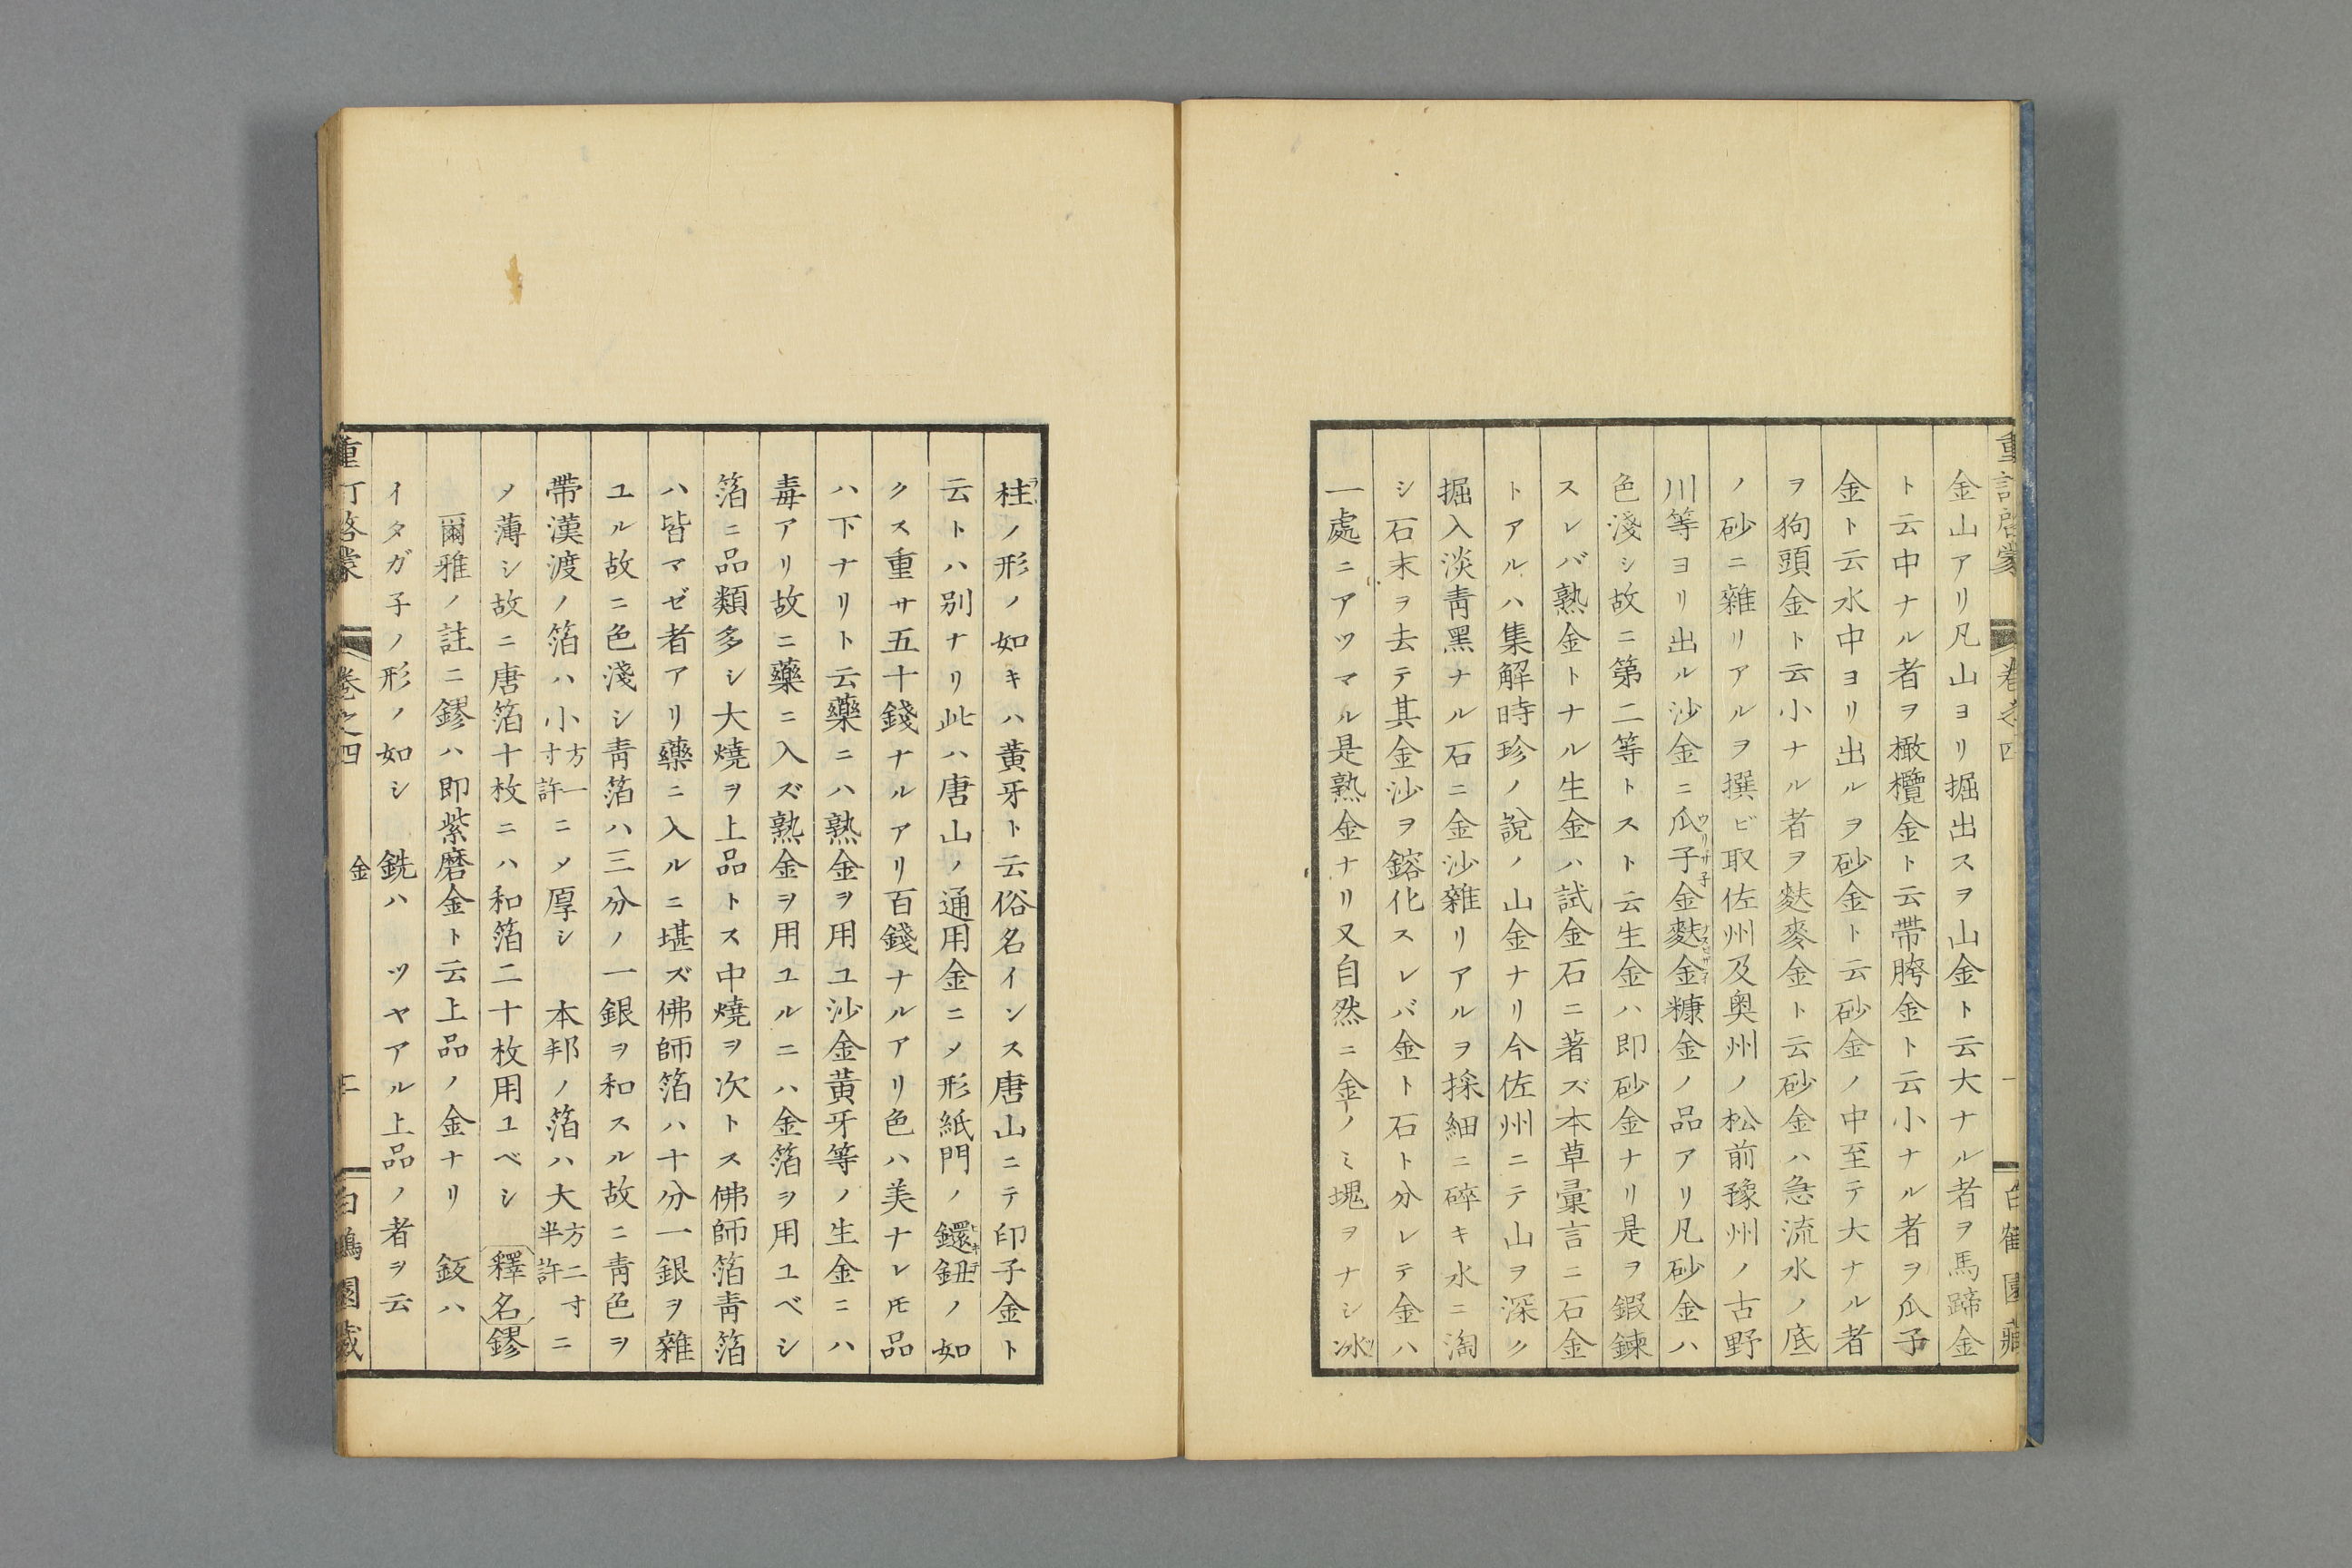 重訂啓蒙 卷之四 一 白鶴園藏
金山アリ凡山ヨリ掘出スヲ山金ト云大ナル者ヲ馬蹄金
ト云中ナル者ヲ橄欖金ト云帶胯金ト云小ナル者ヲ瓜子
金ト云水中ヨリ出ルヲ砂金ト云砂金ノ中至テ大ナル者
ヲ狗頭金ト云小ナル者ヲ麩麥金ト云砂金ハ急流水ノ底
ノ砂ニ雜リアルヲ撰ビ取佐州及奥州ノ松前豫州ノ古野
川等ヨリ出ル沙金ニ瓜子金麩金糠金ノ品アリ凡砂金ハ
色淺シ故ニ第二等トスト云生金ハ即砂金ナリ是ヲ鍜鍊
スレバ熟金トナル生金ハ試金石ニ著ズ本草彙言ニ石金
トアルハ集解時珍ノ說ノ山金ナリ今佐州ニテ山ヲ深ク
掘入淡靑黑ナル石ニ金沙雜リアルヲ採細ニ碎キ水ニ淘
シ石末ヲ去テ其金沙ヲ鎔化スレバ金ト石ト分レテ金ハ
一處ニアツマル是熟金ナリ又自然ニ金ノミ塊ヲナシ冰
柱ノ形ノ如キハ黃牙ト云俗名インス唐山ニテ印子金ト
云トハ別ナリ此ハ唐山ノ通用金ニメ形紙門ノ鐶鈕ノ如
クス重サ五十錢ナルアリ百錢ナルアリ色ハ美ナレ𪜈品
ハ下ナリト云藥ニハ熟金ヲ用ユ沙金黃牙等ノ生金ニハ
毒アリ故ニ藥ニ入ズ熟金ヲ用ユルニハ金箔ヲ用ユベシ
箔ニ品類多シ大燒ヲ上品トス中燒ヲ次トス佛師箔靑箔
ハ皆マゼ者アリ藥ニ入ルニ堪ズ佛師箔ハ十分一銀ヲ雜
ユル故ニ色淺シ靑箔ハ三分ノ一銀ヲ和スル故ニ靑色ヲ
帶漢渡ノ箔ハ小方一寸許ニメ厚シ 本邦ノ箔ハ大方二寸半許ニ
ノ薄シ故ニ唐箔十枚ニハ和箔二十枚用ユベシ 釋名鏐
爾雅ノ註ニ鏐ハ即紫磨金ト云上品ノ金ナリ 鈑ハ
イタガ子ノ形ノ如シ 銑ハ ツヤアル上品ノ者ヲ云
重訂啓蒙 卷之四 金 二 白鶴園藏